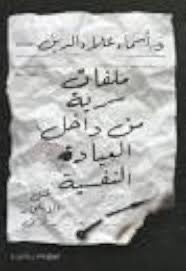 د/أسماء علاء الدين
ملفات
سرية
من داخل
العيادة
النفسية